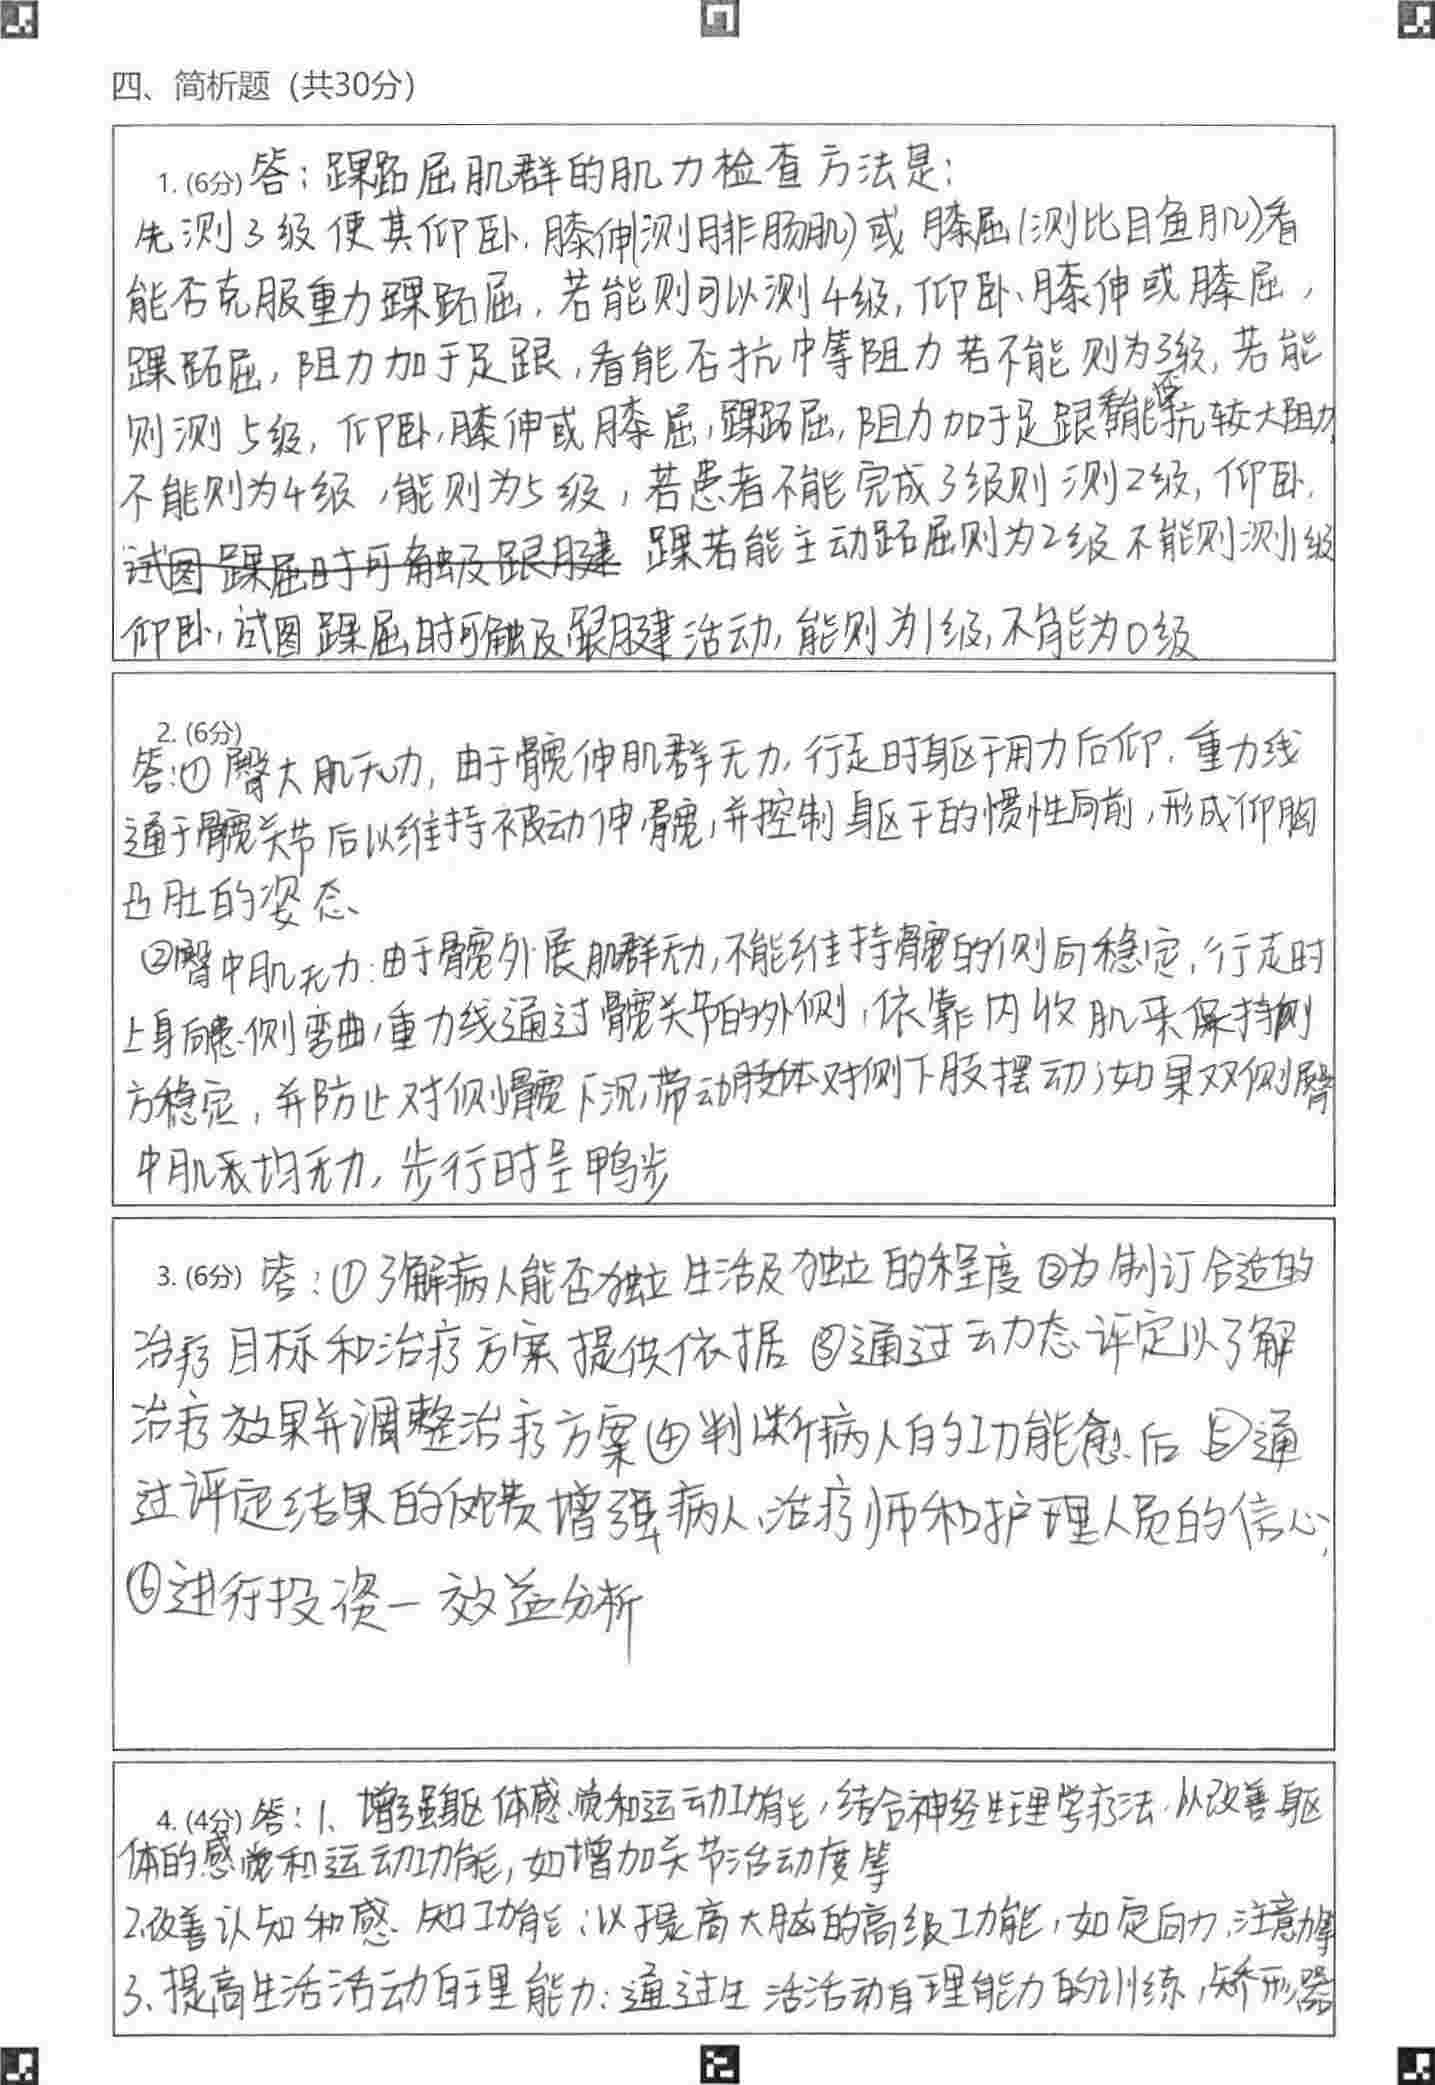 四、简析题（共30分）
1. (6分) 答：踝跖屈肌群的肌力检查方法是：
先测3级使其仰卧，膝伸(测腓肠肌)或膝屈(测比目鱼肌)看
能否克服重力踝跖屈，若能则可以测4级，仰卧、膝伸或膝屈，
踝跖屈，阻力加于足跟，看能否抗中等阻力若不能则为3级，若能
则测5级，仰卧，膝伸或膝屈，踝跖屈，阻力加于足跟看能否抗较大阻力
不能则为4级，能则为5级，若患者不能完成3级则测2级，仰卧，
试图踝屈时可触及跟腱 踝若能主动跖屈则为2级不能则测1级
仰卧，试图踝屈时可触及跟腱活动，能则为1级，不能为0级
2. (6分)
答：①臀大肌无力，由于髋伸肌群无力，行走时躯干用力后仰，重力线
通于髋关节后以维持被动伸髋，并控制躯干的惯性向前，形成仰胸
凸肚的姿态
②臀中肌无力：由于髋外展肌群无力，不能维持髋的侧向稳定，行走时
上身向患侧弯曲，重力线通过髋关节的外侧，依靠内收肌来保持侧
方稳定，并防止对侧髋下沉，带动肢体对侧下肢摆动；如果双侧臀
中肌均无力，步行时呈鸭步
3. (6分) 答：①了解病人能否独立生活及独立的程度②为制订合适的
治疗目标和治疗方案提供依据 ③通过动态评定以了解
治疗效果并调整治疗方案④判断病人的功能愈后 ⑤通
过评定结果的反馈增强病人、治疗师和护理人员的信心，
⑥进行投资一效益分析
4. (4分) 答：1、增强躯体感觉和运动功能，结合神经生理学疗法，以改善躯
体的感觉和运动功能，如增加关节活动度等
2.改善认知和感知功能；以提高大脑的高级功能，如定向力、注意力等
3、提高生活活动自理能力：通过生活活动自理能力的训练，矫形器